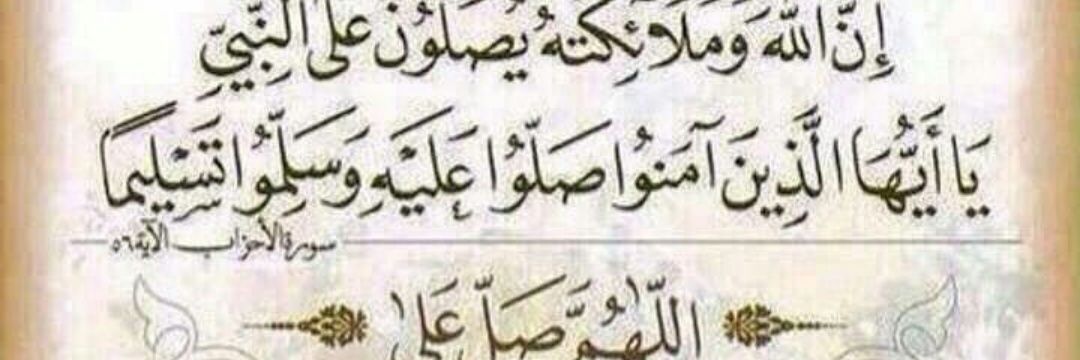 إِنَّ اللَّهَ وَمَلَائِكَتَهُ يُصَلُّونَ عَلَى النَّبِيِّ
يَا أَيُّهَا الَّذِينَ آمَنُوا صَلُّوا عَلَيْهِ وَسَلِّمُوا تَسْلِيمًا
سورة الأحزاب الآية ٥٦
اللَّهُمَّ صَلِّ عَلَى